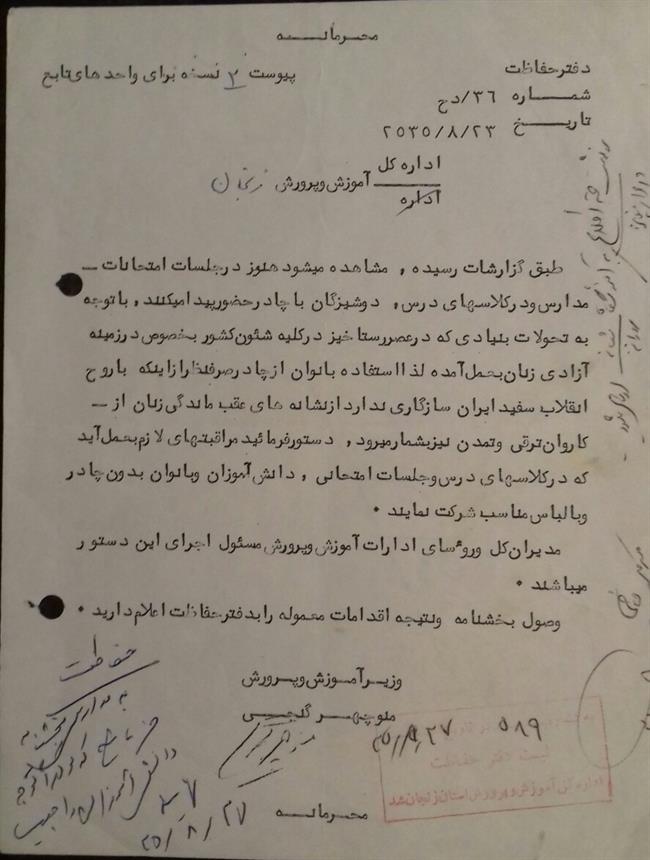 محرمانه
دفتر حفاظت
پیوست ۲ نسخه برای واحدهای تابع
شماره ۳۶/دح
تاریخ ۲۵۳۵/۸/۲۳
اداره کل
آموزش و پرورش زنجان
اداره
طبق گزارشات رسیده ، مشاهده میشود هنوز در جلسات امتحانات ـ
مدارس و در کلاسهای درس ، دوشیزگان با چادر حضور پیدا میکنند ، با توجه
به تحولات بنیادی که در عصر رستاخیز در کلیه شئون کشور بخصوص در زمینه
آزادی زنان بعمل آمده لذا استفاده بانوان از چادر صرفنظر از اینکه با روح
انقلاب سفید ایران سازگاری ندارد از نشانه های عقب ماندگی زنان از ـ
کاروان ترقی و تمدن نیز بشمار میرود ، دستور فرمائید مراقبتهای لازم بعمل آید
که در کلاسهای درس و جلسات امتحانی ، دانش آموزان و بانوان بدون چادر
و با لباس مناسب شرکت نمایند ۰
مدیران کل و روٴسای ادارات آموزش و پرورش مسئول اجرای این دستور
میباشند ۰
وصول بخشنامه و نتیجه اقدامات معموله را بدفتر حفاظت اعلام دارید ۰
وزیر آموزش و پرورش
منوچهر گنجی
۵۸۹
۲۷
ثبت دفتر حفاظت
اداره کل آموزش و پرورش استان زنجان
حفاظت
۲۵/۸/۲۷
محرمانه